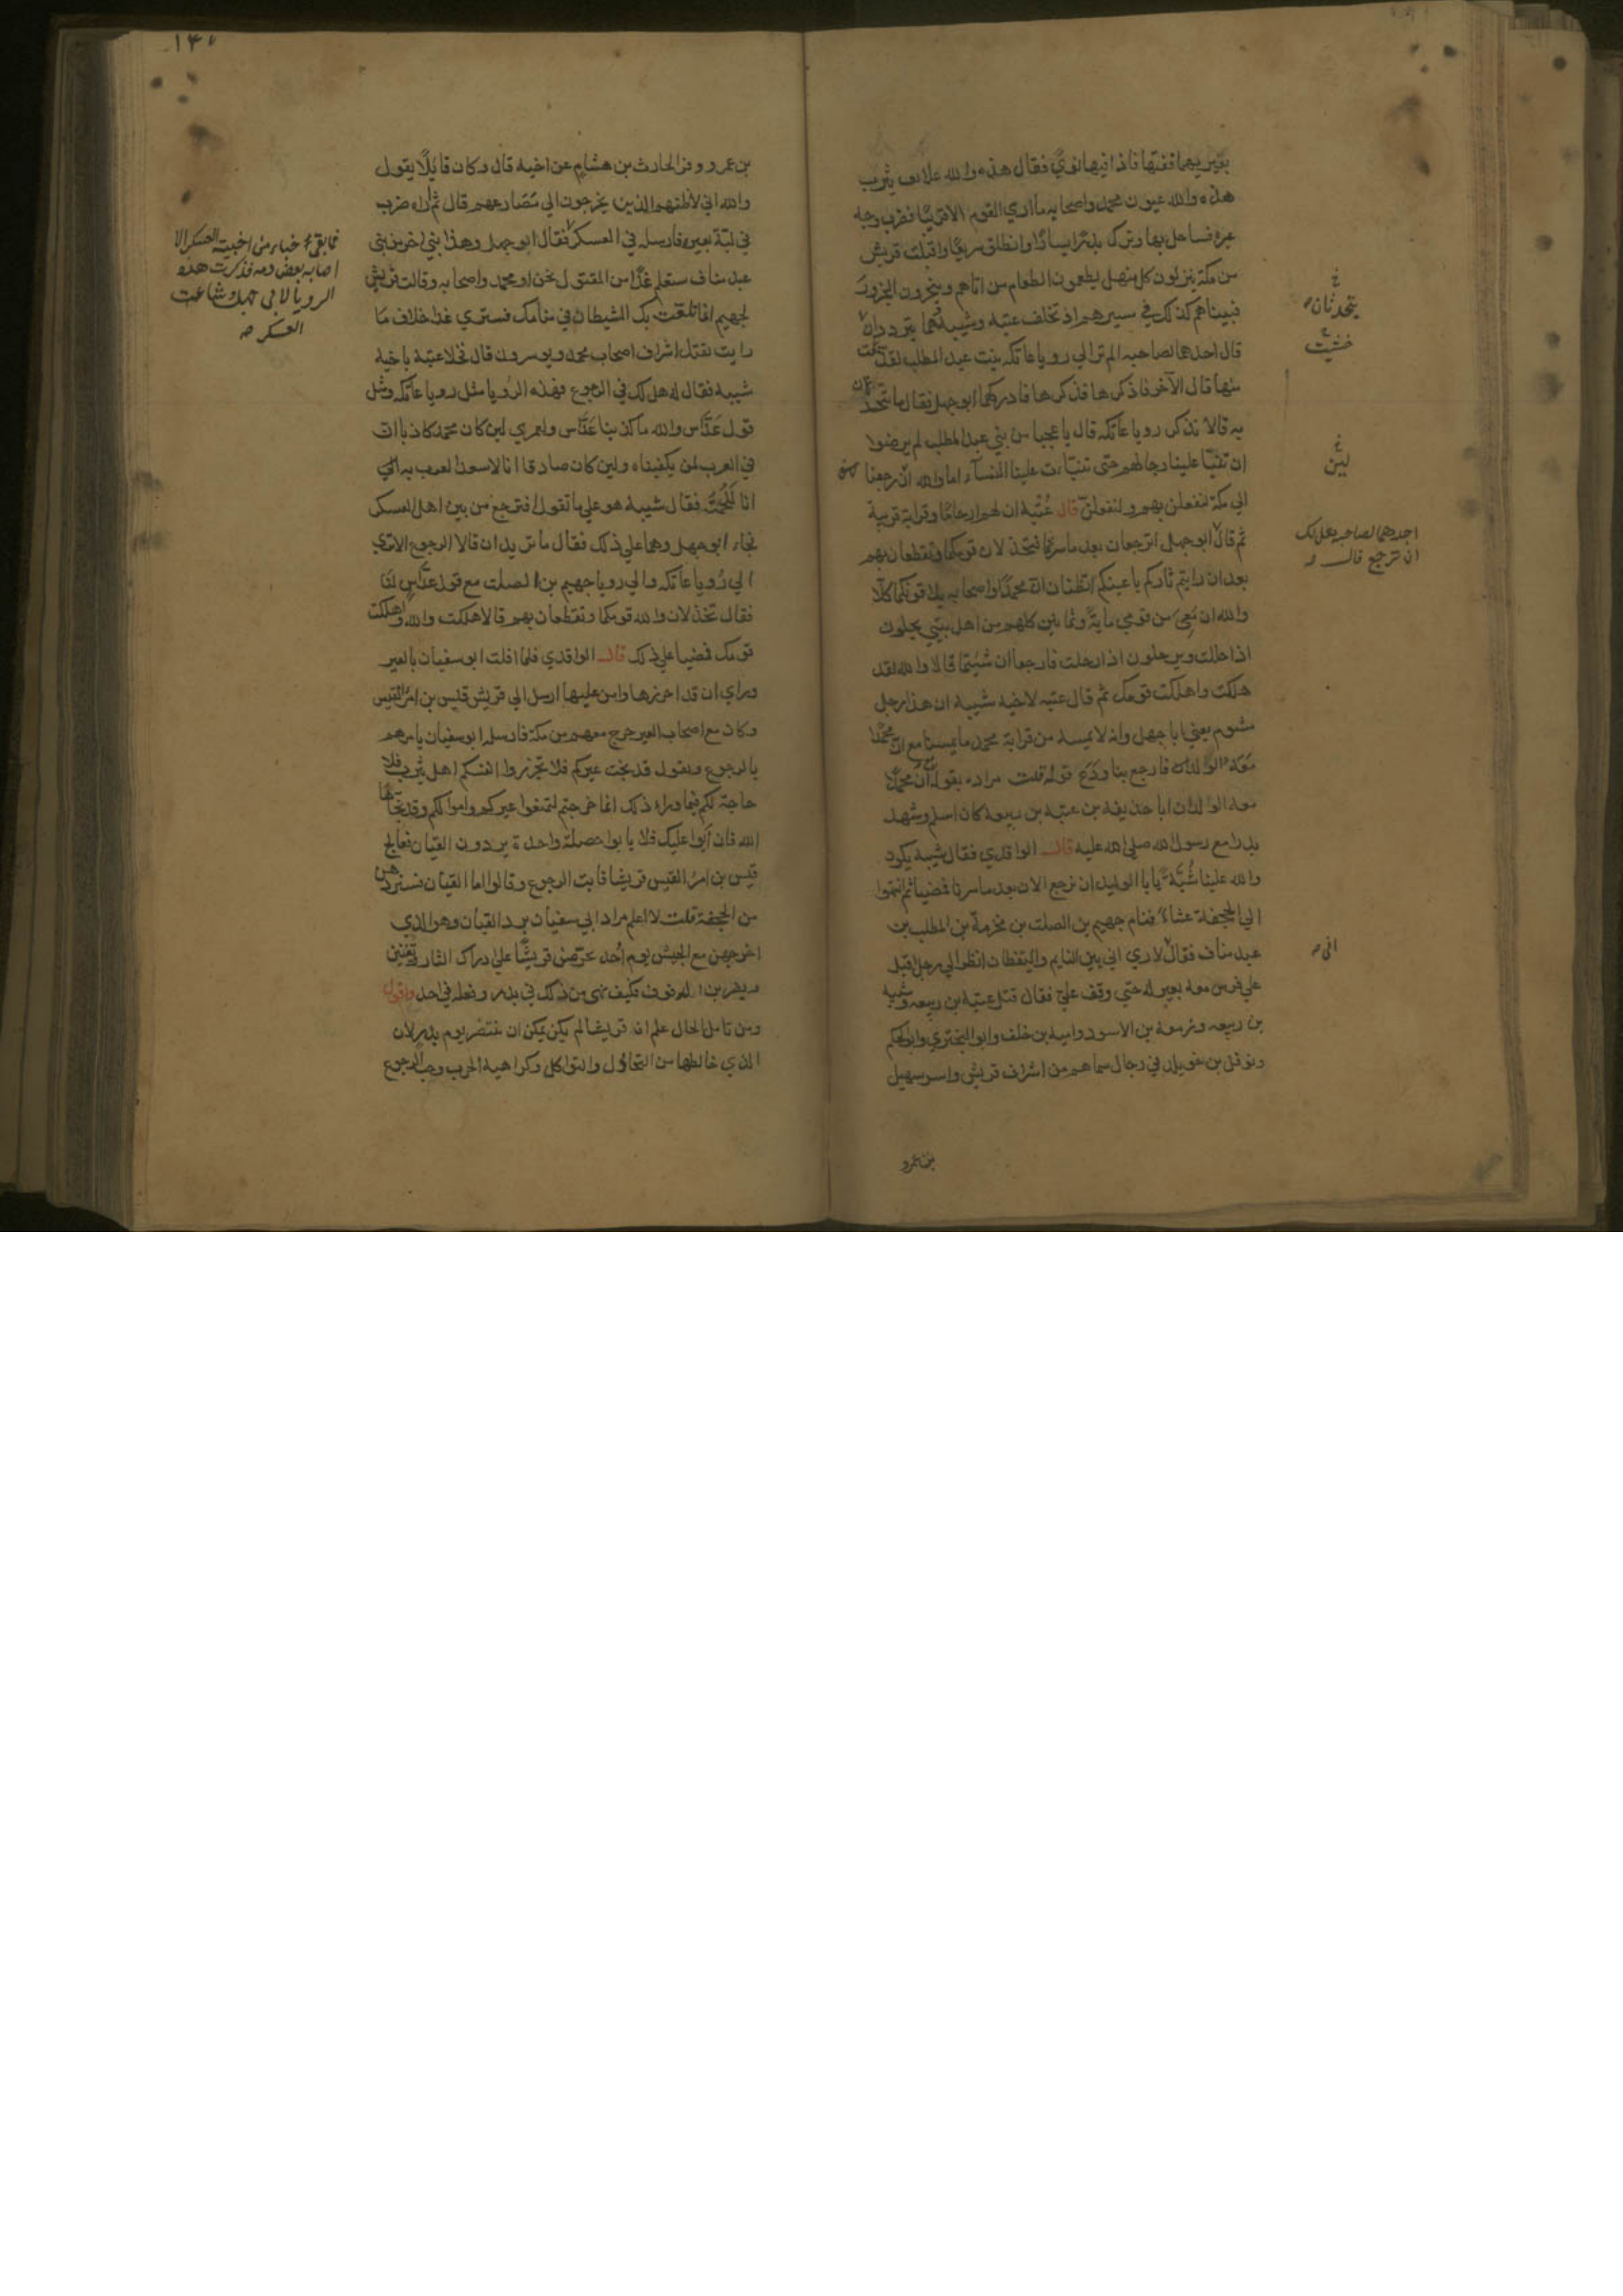 بعيريهما ففتها فاذا فيها نوي فقال هذه والله علائف يثرب
هذه والله عيون محمد واصحابه ما اري القوم الا قريبًا فضرب وجه
عيره فساحل بها وترك بدرًا يسارًا وانطلق سريعًا واقبلت قريش
من مكة ينزلون كل منهل يطعمون الطعام من اتاهم وينحرون الجزور
فبيناهم كذلك في مسيرهم اذ تخلف عتبة وشيبة وهما يترددان
قال احدهما لصاحبه الم تر الي رويا عاتكة بنت عبد المطلب لقد خشيت
منها قال الآخر فاذكرها فذكرها فادركهما ابو جهل فقال ما تتحدثان
به قالا نذكر رويا عاتكة قال يا عجبا من بني عبد المطلب لم يرضوا
ان تنبّا علينا رجالهم حتى تنبّات علينا النسآء اما والله ان رجعنا
الي مكة لنفعلن بهم ولنفعلنّ قال عُتبة ان لهم ارحامًا وقرابة قريبة
ثم قال ابو جهل اترجعان بعد ما سرتما فتخذلان قومكما وتقطعان بهم
بعد ان رايتم ثاركم باعينكم اتظنان انّ محمدًا واصحابه يلاقونكما كلّا
والله ان معي من قومي ماية وثمانين كلهم من اهل بيتي يحلون
اذا حللت ويرحلون اذا رحلت فارجعا ان شيتما قالا والله لقد
هلكت واهلكت قومك ثم قال عتبة لاخيه شيبة ان هذا رجل
مشوم يعني ابا جهل وانه لا يمسه من قرابة محمد ما يمسنا مع انّ محمدًا
معه الولد فارجع بنا ودَع قوله قلت مراده بقوله انّ محمدًا
معه الولد ان ابا حذيفة بن عتبة بن ربيعة كان اسلم وشهد
بدرا مع رسول الله صلى الله عليه قال الواقدي فقال شيبة يكون
والله علينا سُبّة يا ابا الوليد ان نرجع الان بعد ما سرنا فمضيا ثم انتهوا
الي الجحفة عشاءً فنام جهيم بن الصلت بن مخرمة بن المطلب بن
عبد مناف فقال لاري اني بين النايم واليقظان انظر الي رجل اقبل
علي فرس معه بعير له حتي وقف عليّ فقال قتل عتبة بن ربيعه وشيبة
بن ربيعه وزمعة بن الاسود وامية بن خلف وابو البختري وابو الحكم
ونوفل بن خويلد في رجال سماهم من اشراف قريش واسر سهيل
بن عمرو
يتحدثان
خشيت
لين
احدهما لصاحبه هل لك
ان ترجع قال
اني
١٤٧
بن عمرو وفر الحارث بن هشام عن اخيه قال وكان قايلًا يقول
والله اني لاظنهم الذين يخرجون الي مصارعهم قال ثم اراه ضرب
في لبّة بعيره فارسله في العسكر فقال ابو جهل وهذا نبي اخر من بني
عبد مناف ستعلم غدًا من المقتول نحن او محمد واصحابه وقالت قريش
لجهيم انما تلعّبت بك الشيطان في منامك فستري غدا خلاف ما
رايت نقتل اشراف اصحاب محمد ويوسرون قال فخلا عتبة باخيه
شيبة فقال له هل لك في الرجوع فهذه الرويا مثل رويا عاتكة ومثل
قول عدّاس والله ما كذبنا عَدّاس ولعمري لين كان محمد كاذبا ان
في العرب لمن يكفيناه ولين كان صادقا انا لاسعد العرب به
انا لَلُحمته فقال شيبة هو علي ما تقول افترجع من بين اهل العسكر
فجاء ابو جهل وهما علي ذلك فقال ما تريدان قالا الرجوع الا تري
الي رُويا عاتكة والي رويا جهيم بن الصلت مع قول عدّاس لنا
فقال تخذلان والله قومكما وتقطعان بهم قالا هلكت والله واهلكت
قومك فمضيا علي ذلك قال الواقدي فلما افلت ابو سفيان بالعير
وراي ان قد احرزها وامن عليها ارسل الي قريش قيس بن امرُ القيس
وكان مع اصحاب العير خرج معهم من مكة فارسله ابو سفيان يامرهم
بالرجوع ويقول قد نجت عيركم فلا تجزروا انفسكم اهل يثرب فلا
حاجة لكم فيما وراء ذلك انما خرجتم لتمنعوا عيركم واموالكم وقد نجّاها
الله فان ابوا عليك فلا يابوا خصلة واحدة يردون القيان فعالج
قيس بن امرُ القيس قريشا فابت الرجوع وقالوا اما القيان فسنردهن
من الجحفة قلت لا اعلم مراد ابي سفيان برد القيان وهو الذي
اخرجهن مع الجيش يوم اُحد يحرّضن قريشًا علي دراك الثار ويغنين
ويضربن الدفوف فكيف نهى من ذلك في بدر وفعله في احد واقول
ومن تامل الحال علم ان قريشا لم يكن يمكن ان تنتصر يوم بدر لان
الذي خالطها من التخاذل والتواكل وكراهية الحرب وحب الرجوع
فما بقي خباء من اخبية العسكر الا
اصابه بعض دمه فذكرت هذه
الرويا لابي جهل وشاعت
العسكر صه